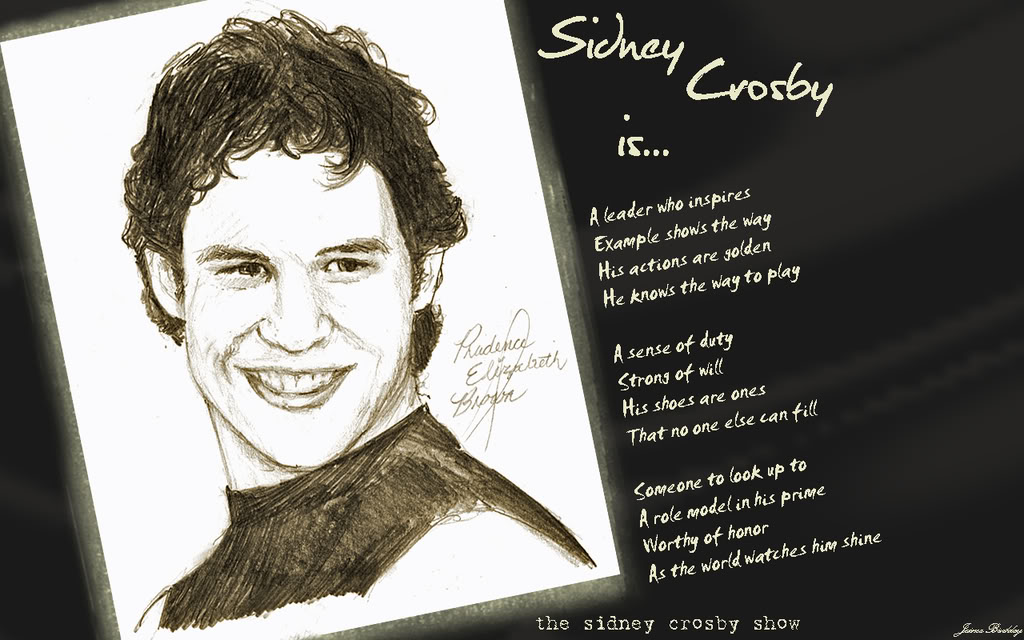 Sidney
Crosby
is...
A leader who inspires
Example shows the way
His actions are golden
He knows the way to play
A sense of duty
Strong of will
His shoes are ones
That no one else can fill
Someone to look up to
A role model in his prime
Worthy of honor
As the world watches him shine
Prudence
Elizabeth
Brown
the sidney crosby show